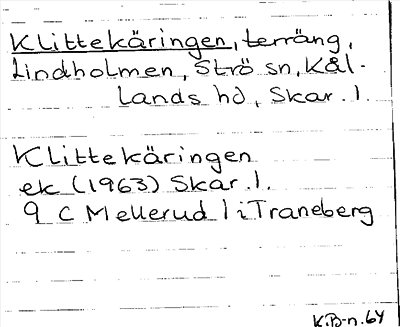 Klittekäringen, terräng,
Lindholmen, Strö sn, Kål-
lands hd, Skar. l.
Klittekäringen
ek (1963) Skar. l.
9 C Mellerud l i Traneberg
K.B-n. 64